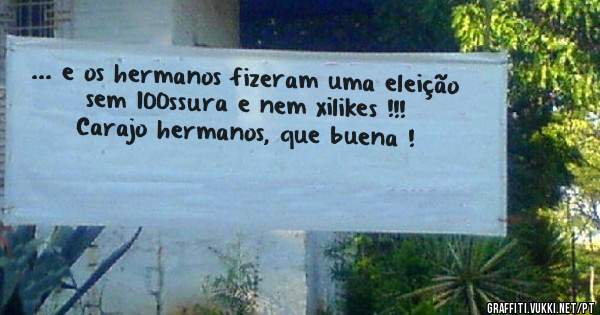 ... e os hermanos fizeram uma eleição
sem 100ssura e nem xilikes !!!
Carajo hermanos, que buena !
GRAFFITI.VUKKI.NET/PT